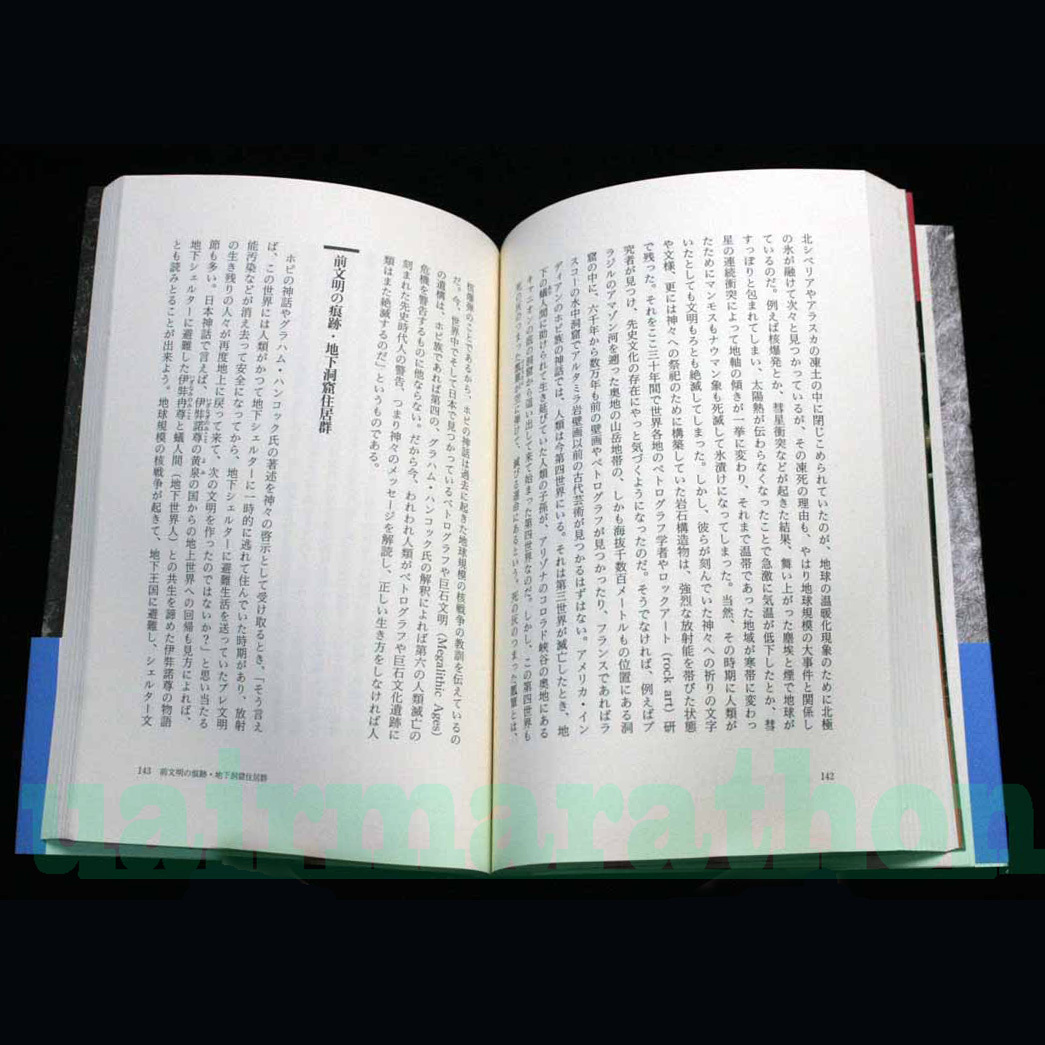 北シベリアやアラスカの凍土の中に閉じこめられていたのが、地球の温暖化現象のために北極
の氷が融けて次々と見つかっているが、その凍死の理由も、やはり地球規模の大事件と関係し
ているのだ。例えば核爆発とか、彗星衝突などが起きた結果、舞い上がった塵埃と煙で地球が
すっぽりと包まれてしまい、太陽熱が伝わらなくなったことで急激に気温が低下したとか、彗
星の連続衝突によって地軸の傾きが一挙に変わり、それまで温帯であった地域が寒帯に変わっ
たためにマンモスもナウマン象も死滅して氷漬けになってしまった。当然、その時期に人類が
いたとしても文明もろとも絶滅してしまった。しかし、彼らが刻んでいた神々への祈りの文字
や文様、更には神々への祭祀のために構築していた岩石構造物は、強烈な放射能を帯びた状態
で残った。それをここ三十年間で世界各地のペトログラフ学者やロックアート(rock art)研
究者が見つけ、先史文化の存在にやっと気づくようになったのだ。そうでなければ、例えばブ
ラジルのアマゾン河を遡った奥地の山岳地帯の、しかも海抜千数百メートルもの位置にある洞
窟の中に、六千年から数万年も前の壁画やペトログラフが見つかったり、フランスであればラ
スコーの水中洞窟でアルタミラ岩壁画以前の古代芸術が見つかるはずはない。アメリカ・イン
ディアンのホピ族の神話では、人類は今第四世界にいる。それは第三世界が滅亡したとき、地
下の蟻人間に助けられて生き延びていた人類の子孫が、アリゾナのコロラド峡谷の奥地にある
キャニオンの底の洞窟から這い出して来て始まった第四世界なのだ。しかし、この第四世界も
死の灰のつまった瓢箪が空に弾けて、滅びる運命にあるという。死の灰のつまった瓢箪とは、
142
核爆弾のことであるから、ホピの神話は過去に起きた地球規模の核戦争の教訓を伝えているの
だ。今、世界中でそして日本で見つかっているペトログラフや巨石文明(Megalithic Ages)
の遺構は、ホピ族であれば第四の、グラハム・ハンコック氏の解釈によれば第六の人類滅亡の
危機を警告するものに他ならない。だから今、われわれ人類がペトログラフや巨石文化遺跡に
刻まれた先史時代人の警告、つまり神々のメッセージを解読し、正しい生き方をしなければ人
類はまた絶滅するのだ」というものである。
前文明の痕跡・地下洞窟住居群
ホピの神話やグラハム・ハンコック氏の著述を神々の啓示として受け取るとき、「そう言え
ば、この世界には人類がかつて地下シェルターに一時的に逃れて住んでいた時期があり、放射
能汚染などが消え去って安全になってから、地下シェルターに避難生活を送っていたプレ文明
の生き残りの人々が再度地上に戻って来て、次の文明を作ったのではないか?」と思い当たる
節も多い。日本神話で言えば、伊弉諾尊の黄泉の国からの地上世界への回帰も見方によれば、
地下シェルターに避難した伊弉冉尊と蟻人間(地下世界人)との共生を諦めた伊弉諾尊の物語
とも読みとることが出来よう。地球規模の核戦争が起きて、地下王国に避難し、シェルター文
143 前文明の痕跡・地下洞窟住居群
uairmarathon